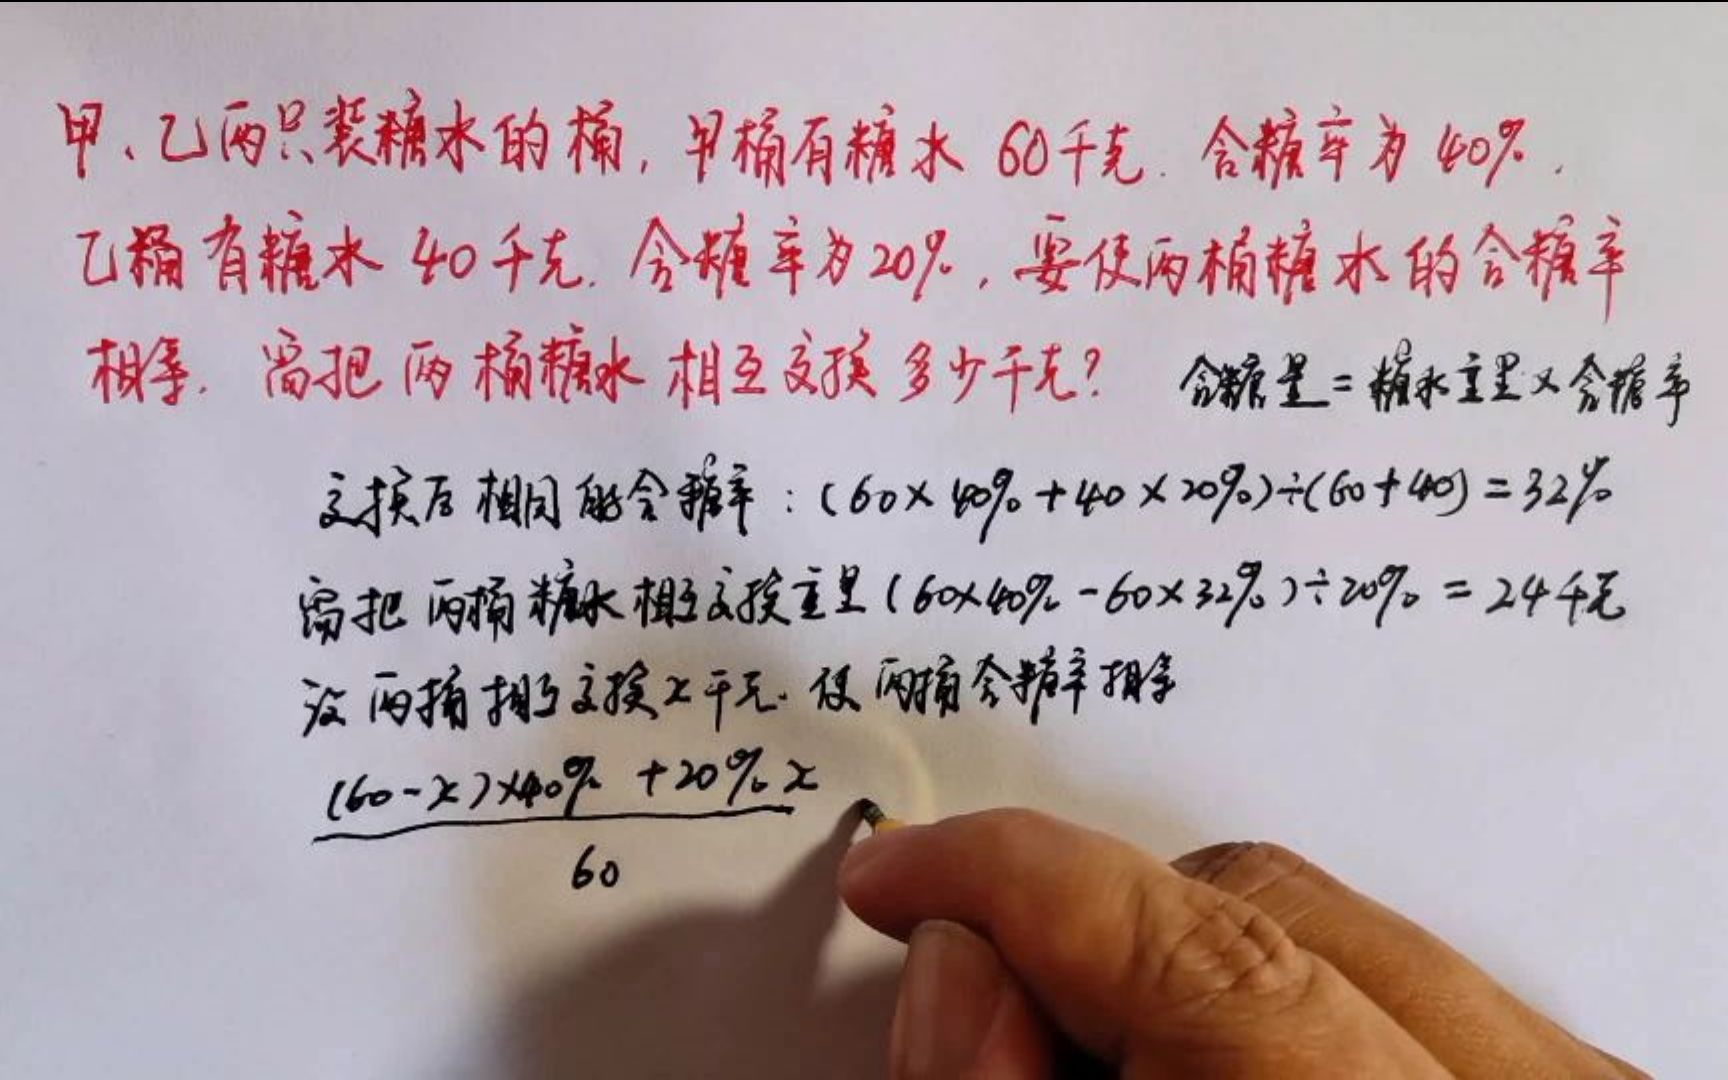 甲、乙两只装糖水的桶,甲桶有糖水60千克.含糖率为40%.
乙桶有糖水40千克.含糖率为20%,要使两桶糖水的含糖率
相等.需把两桶糖水相互交换多少千克?
含糖量=糖水重量×含糖率
交换后相同的含糖率:(60×40%+40×20%)÷(60+40)=32%
需把两桶糖水相互交换重量(60×40%-60×32%)÷20%=24千克
设两桶相互交换x千克.使两桶含糖率相等
(60-x)×40%+20%x
60